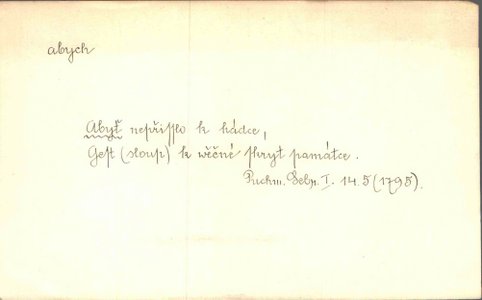 abych
Abyť nepřišlo k hádce,
Gest (sloup) k wěčné skryt památce.
Puchm. Sebr. I. 14. 5 (1795).